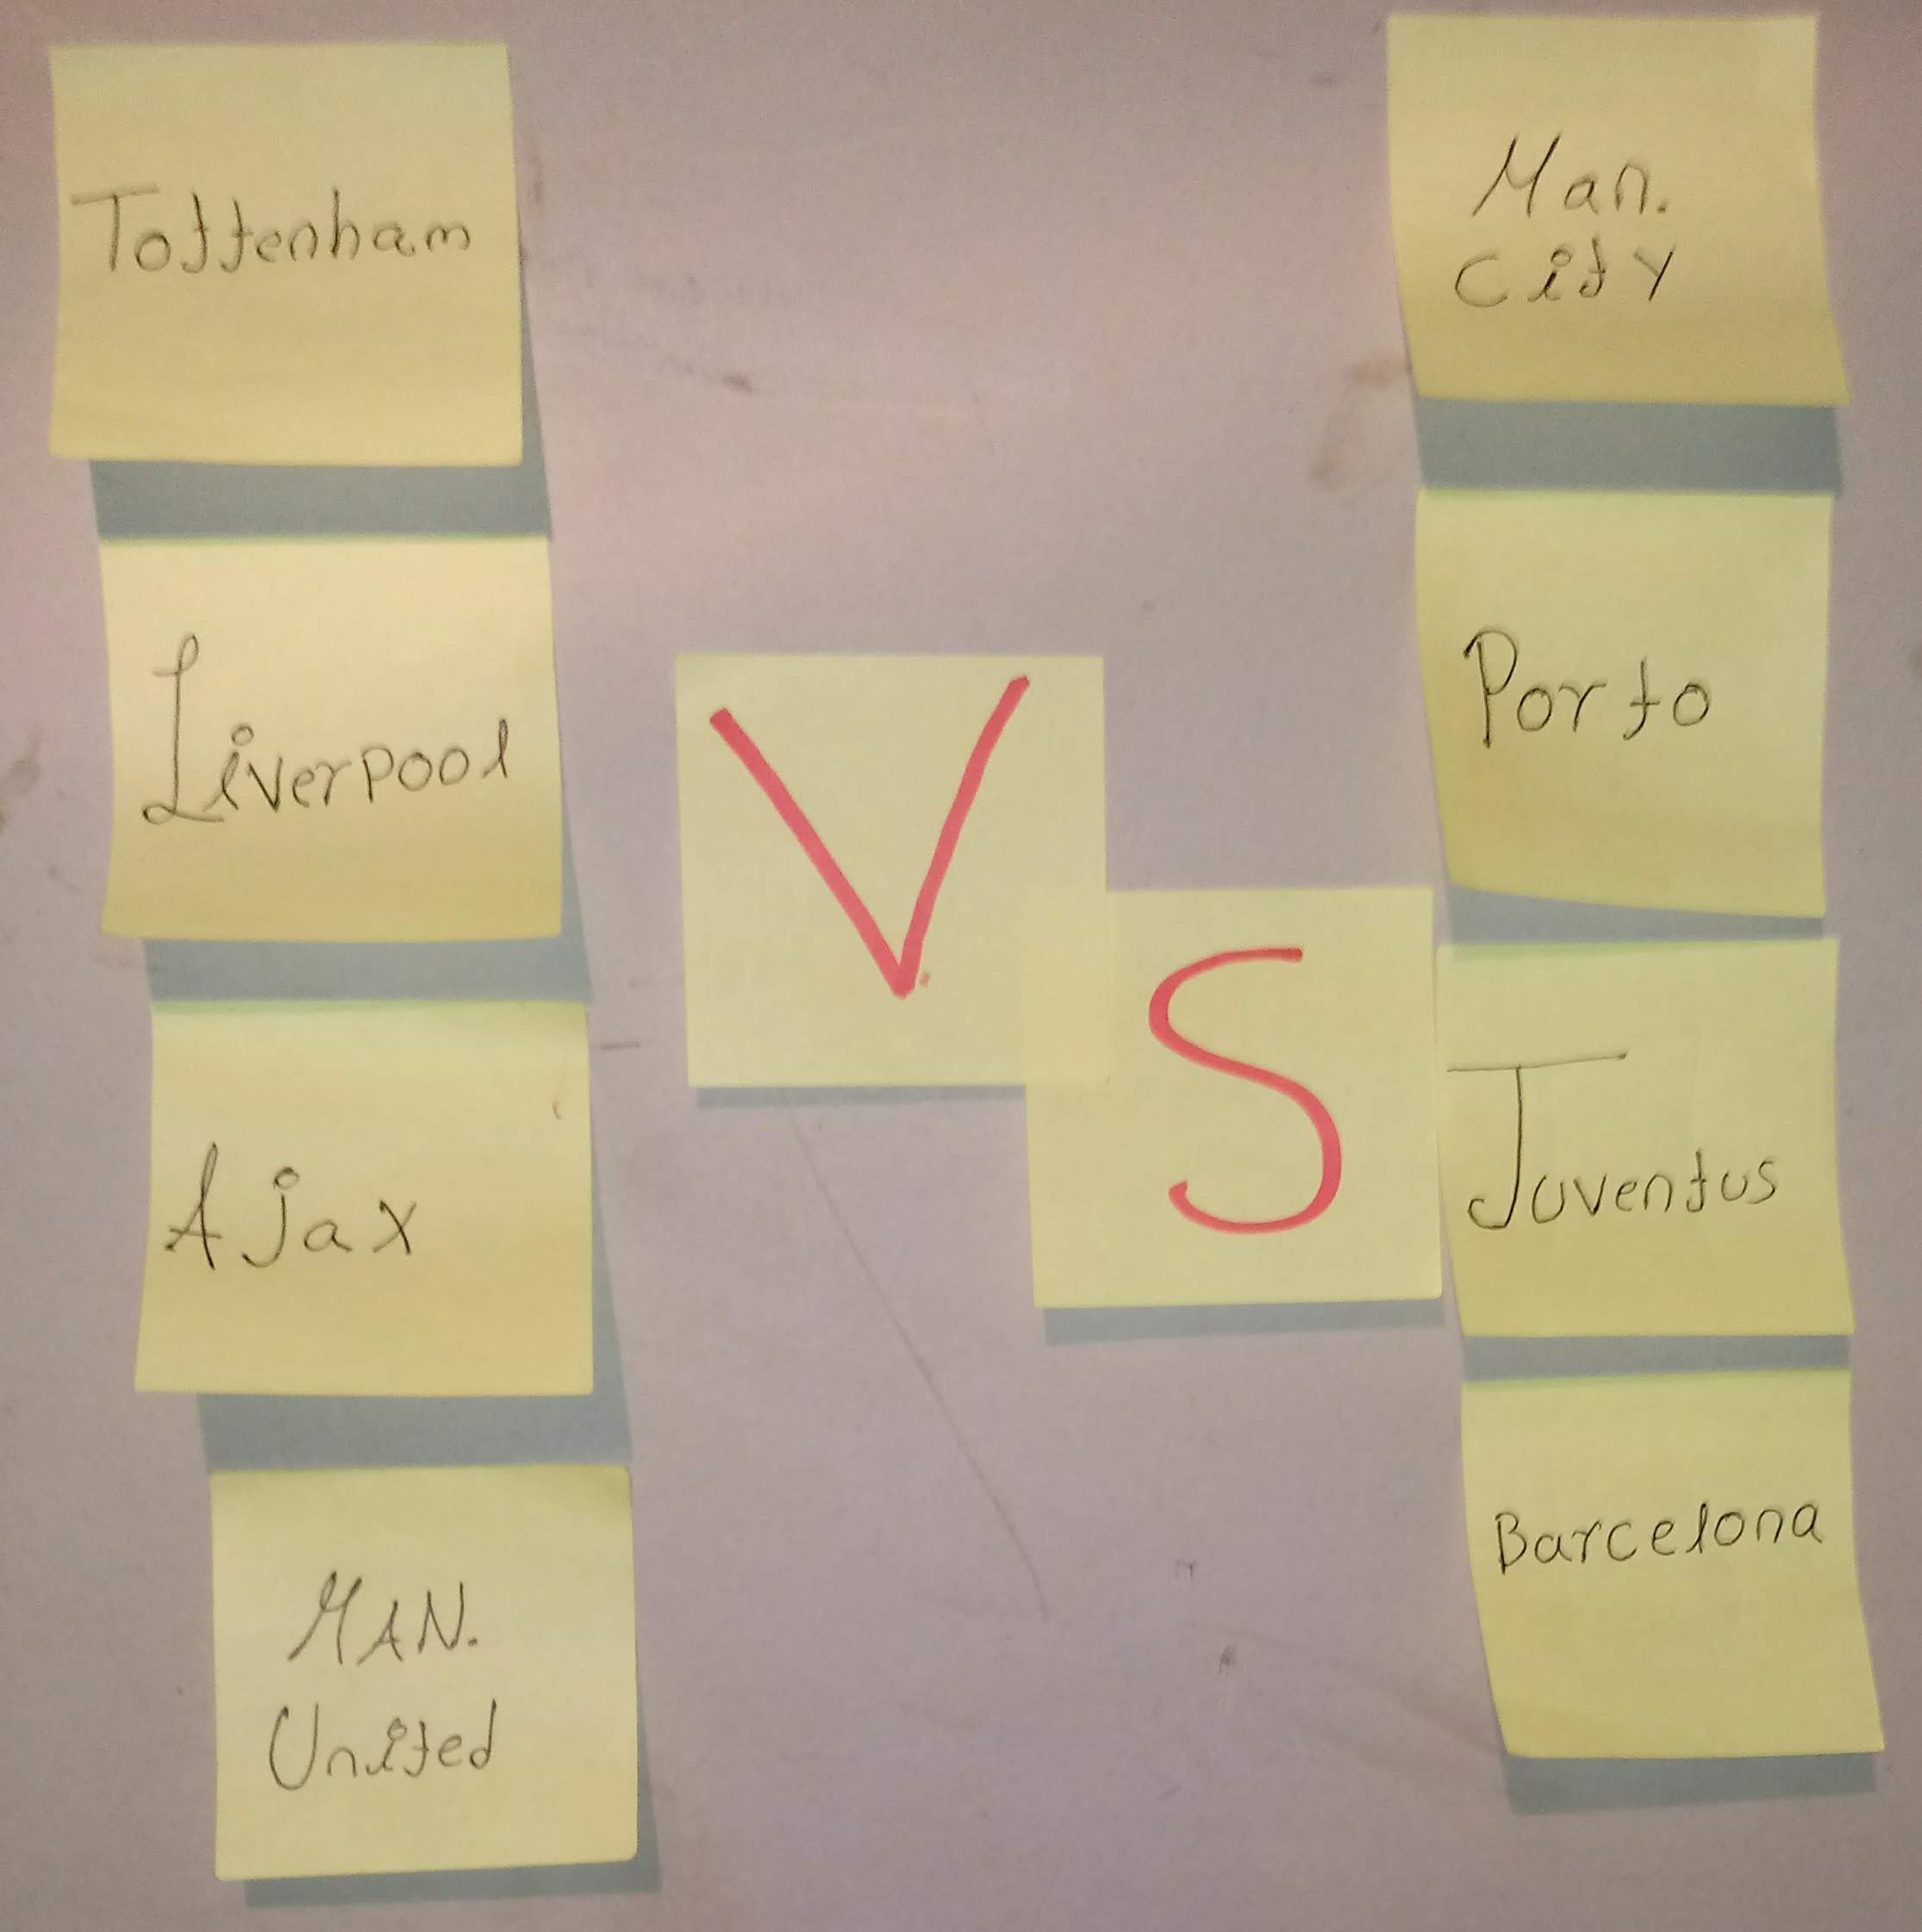 Tottenham
Liverpool
Ajax
MAN.
United
V
S
Man.
City
Porto
Juventus
Barcelona